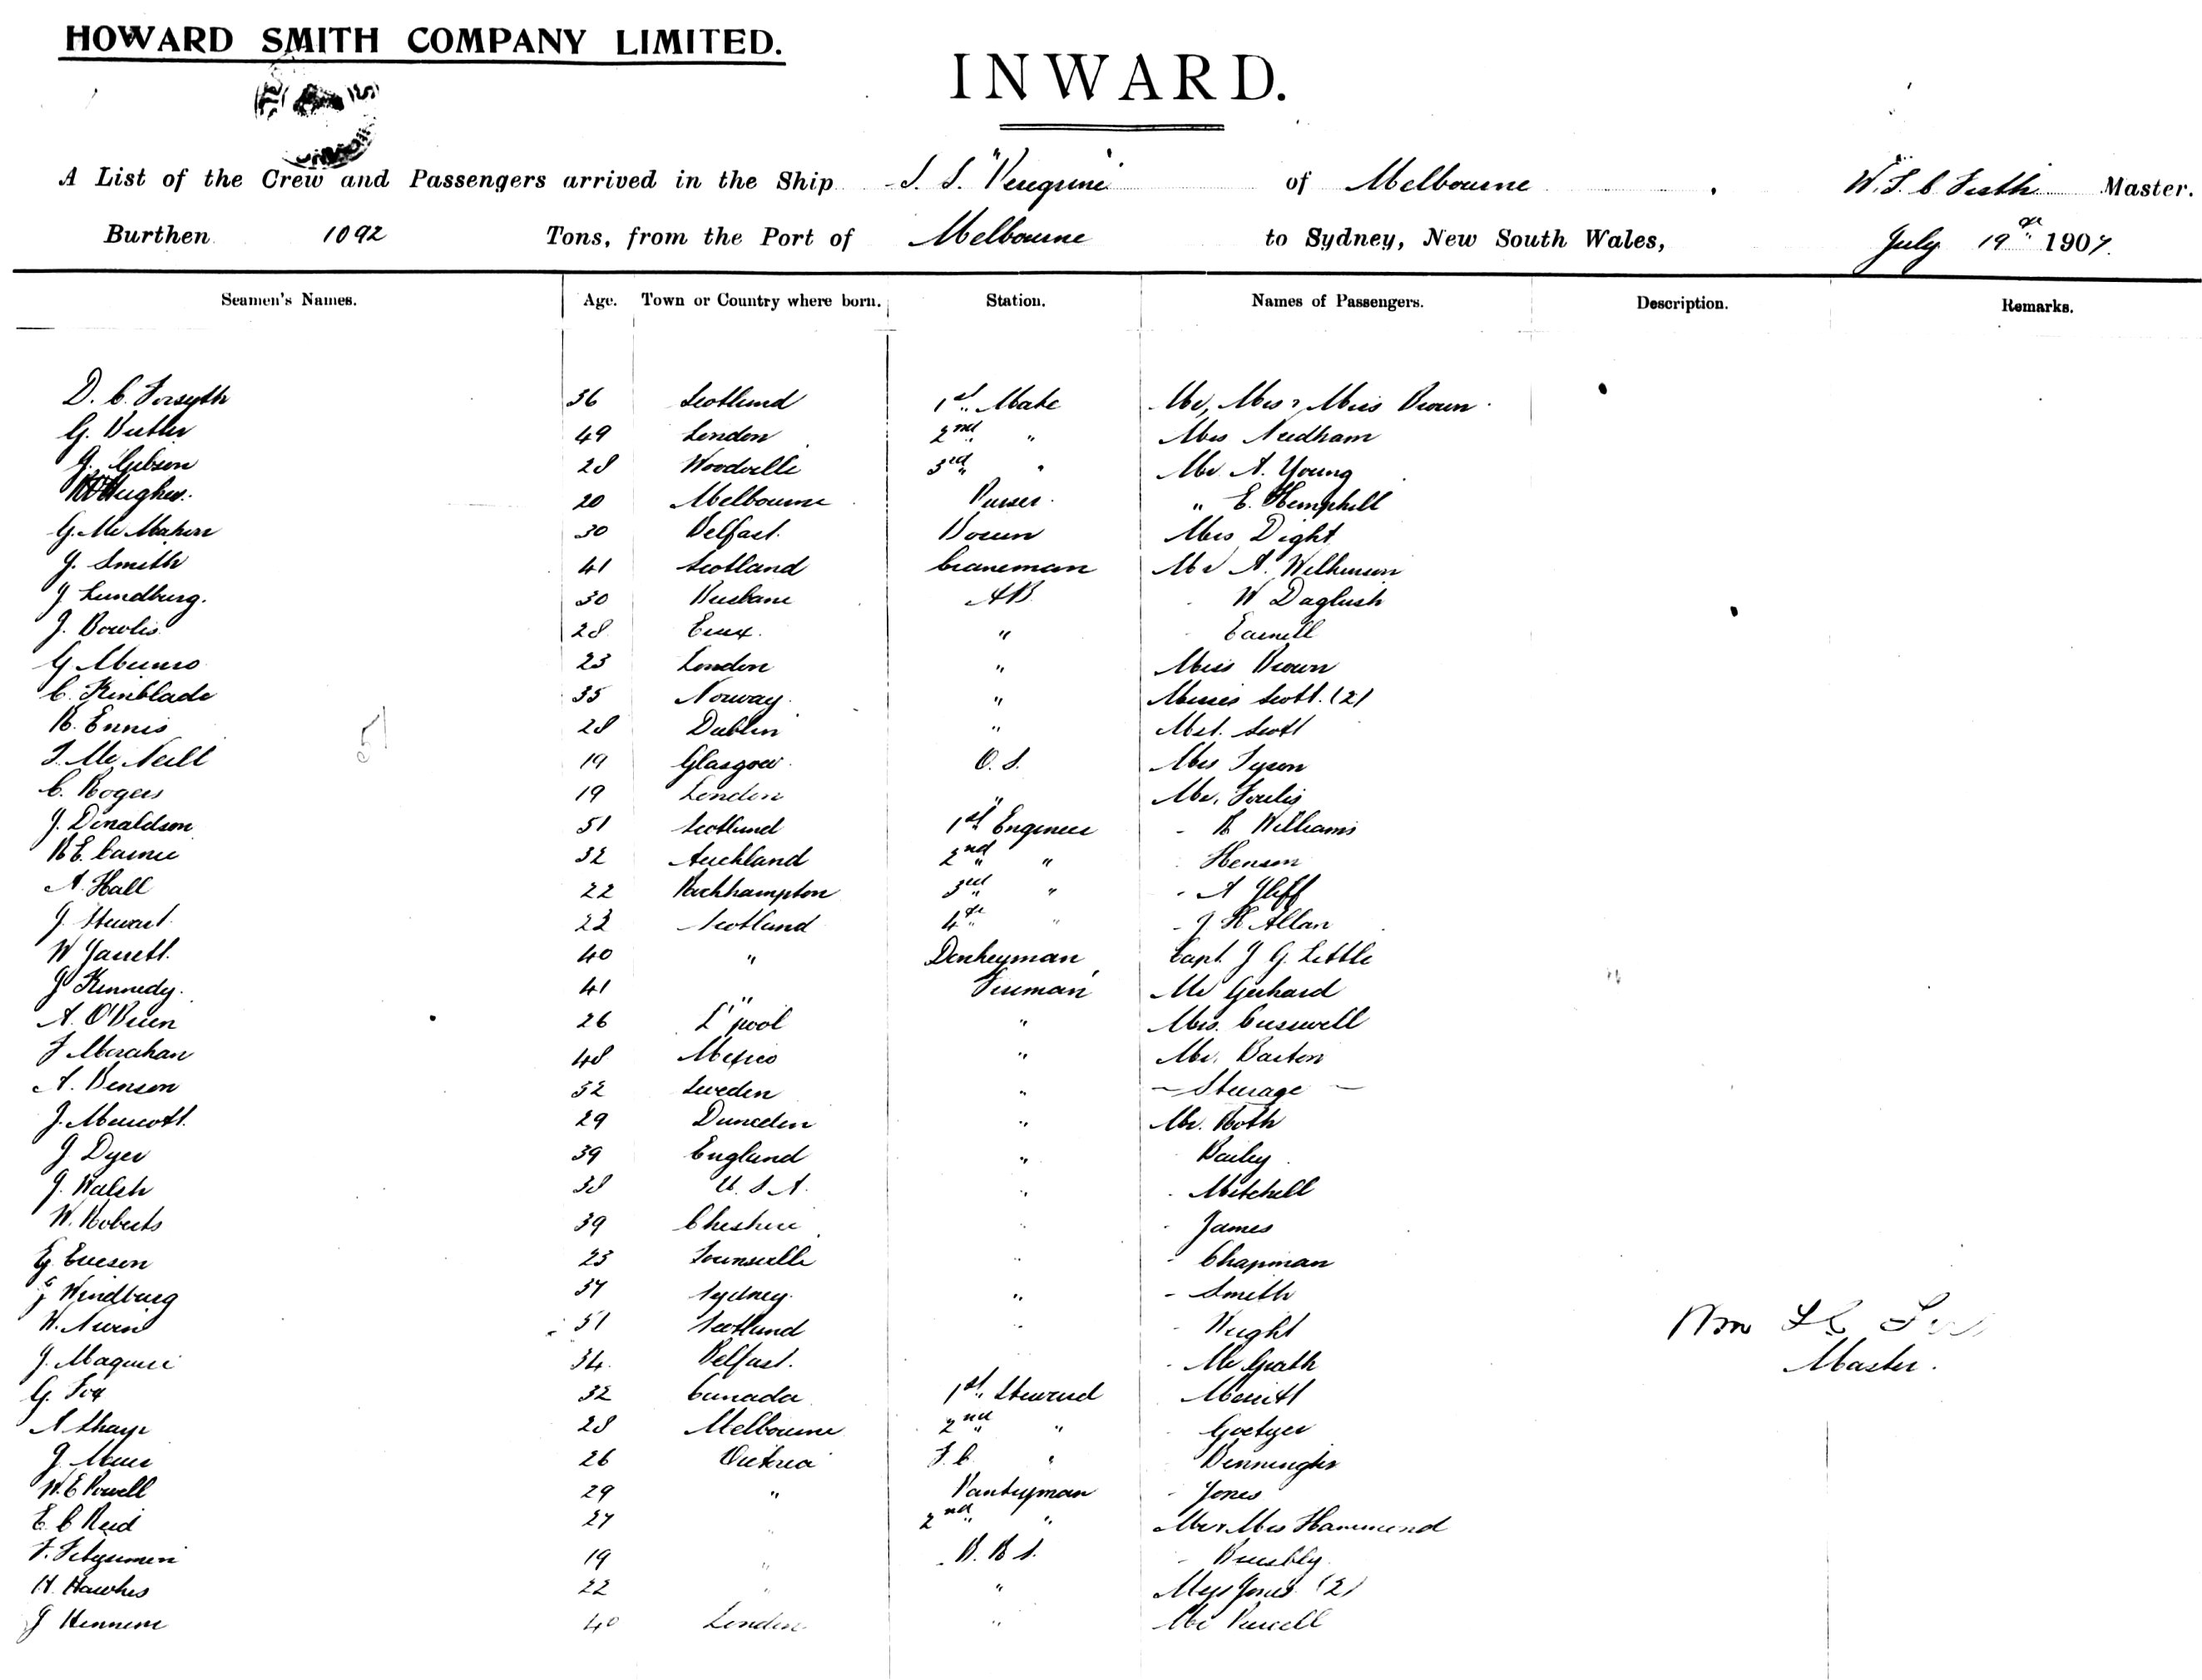 HOWARD SMITH COMPANY LIMITED.
INWARD.
A List of the Crew and Passengers arrived in the Ship S. S. "Peregrine" of Melbourne , Master.
Burthen 1092 Tons, from the Port of Melbourne to Sydney, New South Wales, July 19th 1907.
Seamen's Names. Age. Town or Country where born. Station. Names of Passengers. Description. Remarks.
D. C. Forsyth 36 Scotland 1st Mate Mr, Mrs & Miss Brown
G. Butler 49 London 2nd " Mrs Needham
G. Gibson 28 Woodville 3rd " Mr A. Young
Hughes 20 Melbourne Purser " E. Hemphill
G. Mc Mahon 30 Belfast Bosun Mrs Dight
J. Smith 41 Scotland Craneman Mr A. Wilkinson
J Lundburg. 30 Brisbane AB W Daglish
J. Bowlis 28 Essex. "
G Munro 23 London " Miss Brown
C. Kinblade 35 Norway " Misses Scott. (2)
R. Ennis 28 Dublin " Mst. Scott
51
J. Mc Neill 19 Glasgow O. S. Mrs Tyson
C. Rogers 19 London " Mr. Foulis
J. Donaldson 51 Scotland 1st Engineer - R Williams
R E Cairnie 32 Auckland 2nd " Henson
A. Hall 22 Rockhampton 3rd " - A Iliff
J. Stewart 23 Scotland 4th " - J R Allan
W Jarrett. 40 " Donkeyman Capt. J G. Little
J Kennedy. 41 " Fireman Mr Gerhard
A. O'Brien 26 L'pool " Mrs. Cresswell
J Morahan 48 Mexico " Mr. Barton
A. Benson 32 Sweden " - Steerage -
J. Marriott. 29 Dunedin " Mr. Roth
J Dyer 39 England " Bailey
J. Walsh 38 U. S. A. " Mitchell
W. Roberts 39 Cheshire " James
G. Ericson 23 Townsville " Chapman
J Windburg 37 Sydney " - Smith
W. Niven 51 Scotland " Wright
J. Maguire 34 Belfast. - Mc Grath
Master.
G. Fox 32 Canada 1st Steward Merritt
A Sharp 28 Melbourne 2nd " Goetzer
J. Muir 26 Victoria F. C. " Bennington
W. E Powell 29 " Pantryman - Jones
E. C Reid 27 " 2nd " Mr & Mrs Hammond
F. Fitzsimon 19 " B. R S.
H. Hawkes 22 " " Jones (2)
J Hennem 40 London " Mr Purcell